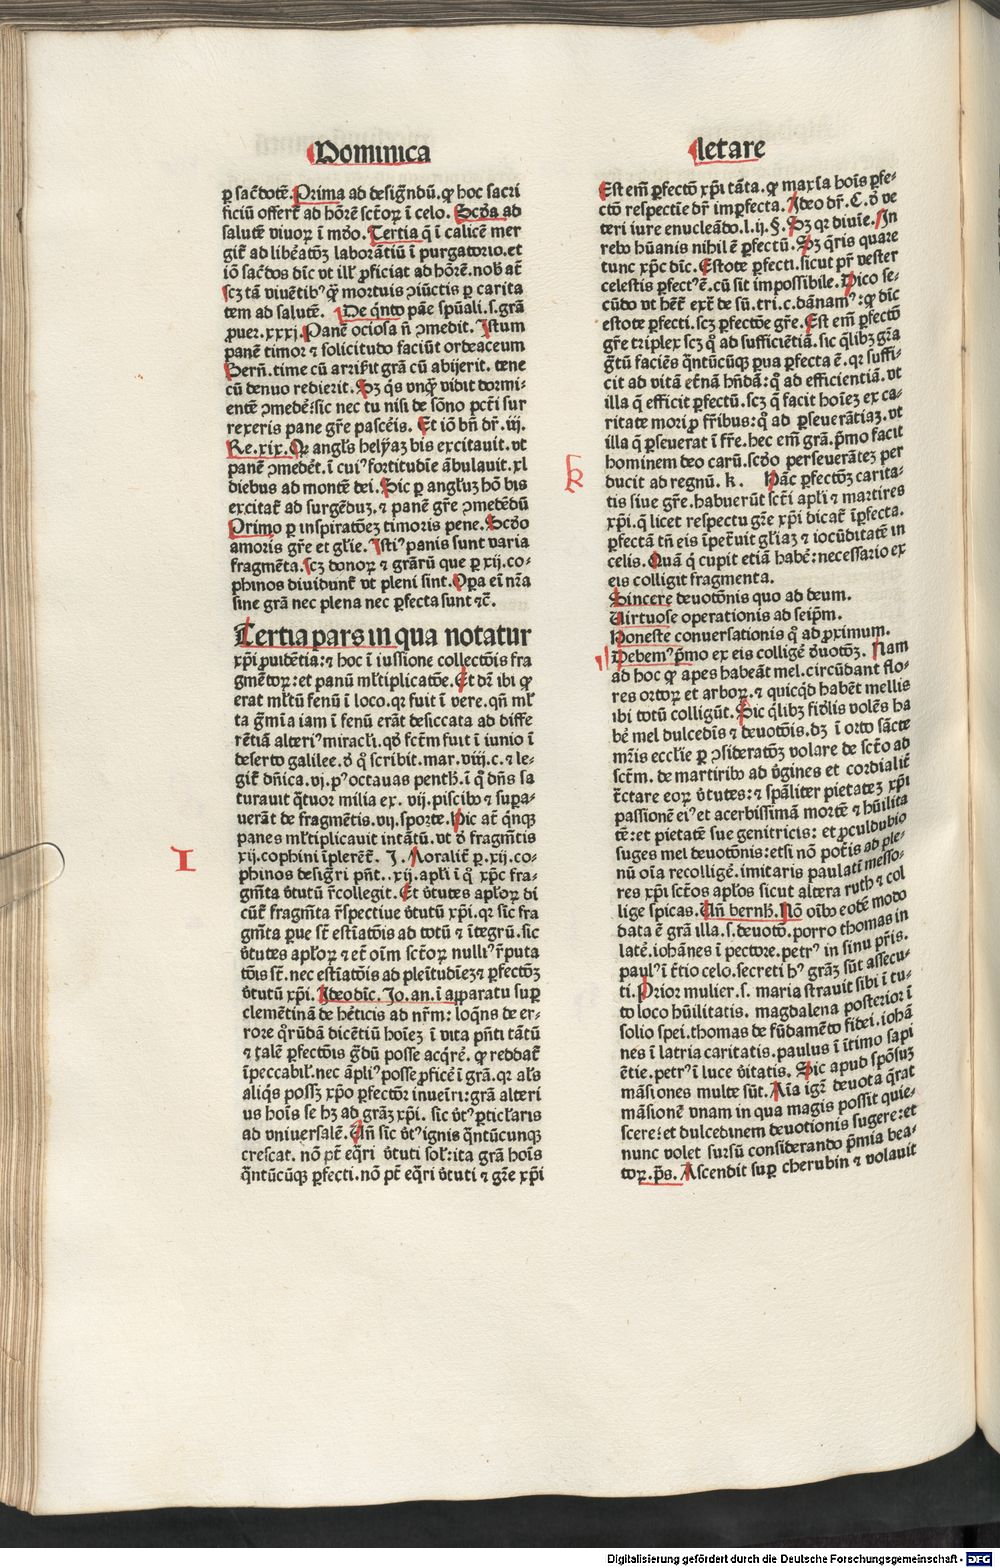 Dominica
letare
ꝑ sac̄dotē. Prima ad desig̃ndū. ꝙ hoc sacri
ficiū offert̄ ad hōrē sc̄toꝝ ī celo. Scd̄a ad
salutē viuoꝝ ī mūdo. Tertia q̄ ī calicē mer
git̄ ad lib̄atōꝫ laborātiū ī purgatorio. et
iō sac̄dos dīc vt ill' ꝓficiat ad hōrē. nob̄ at̄
scꝫ tā viuētibꝰ ꝙ̄ mortuis ꝯiūctis ꝑ carita
tem ad salutē. De qn̄to pāe spūali. s. grā
ꝓuer. xxxj. Panē ociosa n̄ ꝯmedit. Istum
panē timor ⁊ solicitudo faciūt ordeaceum
Bern̄. time cū arriſit grā cū abijerit. tene
cū denuo redierit. Sꝫ q̄s vnq̄ꝫ vidit dormi-
entē ꝯmedē: sic nec tu nisi de sōno pct̄i sur
rexeris pane gr̄e pascēis. Et iō bn̄ dr̄. iij.
Re. xix. Qꝛ angl's helyaꝫ bis excitauit. vt
panē ꝯmedēt. ī cuiꝰ fortitudīe ābulauit. xl
diebus ad montē dei. Sic ꝑ angl'uꝫ hō bis
excitat̄ ad surgēduꝫ. ⁊ panē gr̄e ꝯmedēdū
Primo ꝑ inspiratōeꝫ timoris pene. Scd̄o
amoris gr̄e et gl'ie. Isti panis sunt varia
fragmēta. scꝫ donoꝝ ⁊ grārū que ꝑ xij. co-
phinos diuidunt̄ vt pleni sint. Oꝑa eī nr̄a
sine grā nec plena nec ꝑfecta sunt ⁊c̄.
Tertia pars in qua notatur
xp̄i ꝓuidētia: ⁊ hoc ī iussione collectōis fra
gmētoꝝ: et panū ml'tiplicatōe. Et dr̄ ibi ꝙ
erat ml'tū fenū ī loco. qꝛ fuit ī vere. qn̄ ml'
ta gm̄ia iam ī fenū erāt desiccata ad diffe
rētiā alteriꝰ miracl'i. qd̄ fct̄m fuit ī iunio ī
deserto galilee. d̄ q̄ scribit. mar. viij. c. ⁊ le-
git̄ dn̄ica. vj. pꝰ octauas pentħ. ī q̄ dn̄s sa
turauit q̄tuor milia ex. vij. piscibꝰ ⁊ supa-
uerāt de fragmētis. vij. sporte. Hic at̄ q̄nqꝫ
panes ml'tiplicauit intātū. vt d̄ fragmētis
xij. cophini īplerēt̄. I. Moralit̄ ꝑ. xij. co-
phinos desigr̄i pn̄t. xij. apl'i ī q̄ xp̄c fra-
gm̄ta v̄tutū r̄collegit. Et v̄tutes apl'oꝝ di
cūt̄ fragm̄ta r̄spectiue v̄tutū xp̄i. qꝛ sic fra
gm̄ta ꝑue st̄ estīatōis ad totū ⁊ ītegrū. sic
v̄tutes apl'oꝝ ⁊ et̄ oīm sctōꝝ nulliꝰ r̄puta
tōis st̄. nec estīatōis ad pleītudīeꝫ ⁊ ꝑfectōꝫ
v̄tutū xp̄i. Ideo dīc. Jo. an. ī apparatu suꝑ
clemētinā de hēticis ad nr̄m: loqn̄s de er-
rore q̄rūdā dicētiū hoīeꝫ ī vita pn̄ti tātū
⁊ talē ꝑfectōis gd̄ū posse acqr̄ē. ꝙ reddat̄
īpeccabil'. nec āpliꝰ posse ꝓficē ī grā. qꝛ al's
aliq̄s possꝫ xp̄o ꝑfectōꝛ inueīri: grā alteri
us hoīs se hꝫ ad grāꝫ xp̄i. sic v̄tꝰ ꝑticl'aris
ad vniuersalē. Un̄ sic v̄tꝰ ignis q̄ntūcunqꝫ
crescat. nō pt̄ eq̄ri v̄tuti sol': ita grā hoīs
q̄ntūcūqꝫ ꝑfecti. nō pt̄ eq̄ri v̄tuti ⁊ gr̄e xp̄i
I
k
Est em̄ ꝑfectō xp̄i tāta. ꝙ maxīa hoīs ꝑfe-
ctō respectīe dr̄ imꝑfecta. Ideo dr̄. C. d̄ ve
teri iure enucleādo. l. ij. §. Sꝫ qꝛ diuīe. In
rebꝰ hūanis nihil ē ꝑfectū. Sꝫ q̄ris quare
tunc xp̄c dīc. Estote ꝑfecti. sicut pr̄ vester
celestis ꝑfectꝰ ē. cū sit impossibile. Dico se-
cūdo vt hēt̄ ext̄ de sū. tri. c. dānamꝰ: ꝙ dīc
estote ꝑfecti. scꝫ ꝑfectōe gr̄e. Est em̄ ꝑfectō
gr̄e triplex scꝫ q̄ ad sufficiētiā. sic q̄libꝫ grā
gr̄tū faciēs q̄ntūcūqꝫ ꝑua ꝑfecta ē. qꝛ suffi-
cit ad vitā et̄nā hn̄dā: q̄ ad efficientiā. vt
illa q̄ efficit ꝑfectū. scꝫ q̄ facit hoīeꝫ ex ca-
ritate mori ꝓ fr̄ibus: q̄ ad ꝑseuerātiaꝫ. vt
illa q̄ ꝑseuerat ī fīe. hec em̄ grā. p̄mo facit
hominem deo carū. scd̄o perseuerāteꝫ per
ducit ad regnū. k. Hāc ꝑfectōꝫ carita-
tis siue gr̄e. habuerūt sct̄i apl'i ⁊ martires
xp̄i. q̄ licet respectu gr̄e xp̄i dicat̄ īꝑfecta.
ꝑfectā tn̄ eis īpet̄uit gl'iaꝫ ⁊ iocūditatē in
celis. Quā q̄ cupit etiā habē: necessario ex
eis colligit fragmenta.
Sincere deuotōnis quo ad deum.
Uirtuose operationis ad seip̄m.
Honeste conuersationis q̄ ad ꝓximum.
Debemꝰ p̄mo ex eis colligē d̄uotōꝫ. Nam
ad hoc ꝙ apes habeāt mel. circūdant flo-
res ortoꝝ et arboꝝ. ⁊ quicqd̄ habēt mellis
ibi totū colligūt. Sic q̄libꝫ fid̄lis volēs ha
bē mel dulcedīs ⁊ deuotōis. dꝫ ī orto sācte
mr̄is eccl'ie ꝑ ꝯsideratōꝫ volare de sct̄o ad
sct̄m. de martiribꝰ ad v̄gines et cordialit̄
t̄ctare eoꝝ v̄tutes: ⁊ spāliter pietateꝫ xp̄i
passionē eiꝰ et acerbissimā mortē ⁊ hūilita
tē: et pietatē sue genitricis: et ꝓculdubio
suges mel deuotōnis: etsi nō potīs ad ple-
nū oīa recolligē. imitaris paulatī messo-
res xp̄i sct̄os apl'os sicut altera ruth ⁊ col
lige spicas. Un̄ bernħ. Nō oībꝰ eodē modo
data ē grā illa. s. deuotō. porro thomas in
latē. iohānes ī pectore. petrꝰ in sinu pr̄is.
paulꝰ ī t̄tio celo. secreti hꝰ grāꝫ sūt assecu-
ti. Prior mulier. s. maria strauit sibi ī tu-
to loco hūilitatis. magdalena posterior ī
solio spei. thomas de fūdamēto fidei. iohā
nes ī latria caritatis. paulus ī ītimo sapi
ētie. petrꝰ ī luce v̄itatis. Sic apud spōsuꝫ
māsiones multe sūt. Aīa igr̄ deuota q̄rat
māsionē vnam in qua magis possit quie-
scere: et dulcedinem deuotionis sugere: et
nunc volet sursū considerando p̄mia bea-
toꝝ. ps. Ascendit suꝑ cherubin ⁊ volauit
Digitalisierung gefördert durch die Deutsche Forschungsgemeinschaft - DFG